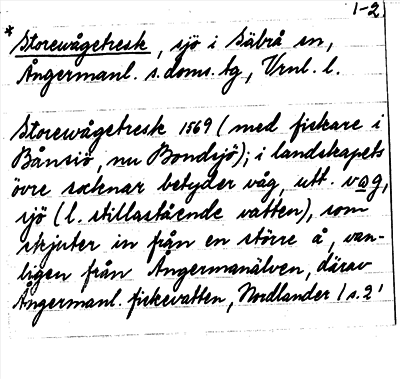 1-2.
* Storewågetresk, sjö i Säbrå sn,
Ångermanl. s. doms. tg, Vrnl. l.
Storewågetresk 1569 (med fiskare i
Bånsiö, nu Bondsjö); i landskapets
övre socknar betyder våg, utt. vag,
sjö (l. stillastående vatten), som
skjuter in från en större å, van-
ligen från Ångermanälven, därav
Ångermanl. fiskevatten, Nordlander / s. 2'